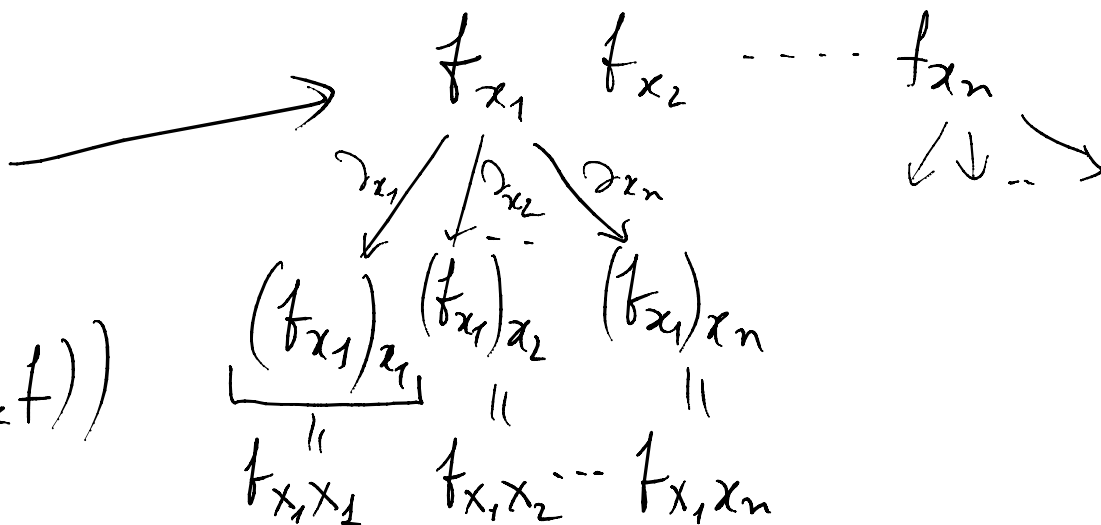 f_{x_1} f_{x_2} ---- f_{x_n}
∂_{x_1} ∂_{x_2} -- ∂_{x_n} --
(f_{x_1})_{x_1} (f_{x_1})_{x_2} (f_{x_1})_{x_n}
f)) = = =
f_{x_1 x_1} f_{x_1 x_2} --- f_{x_1 x_n}